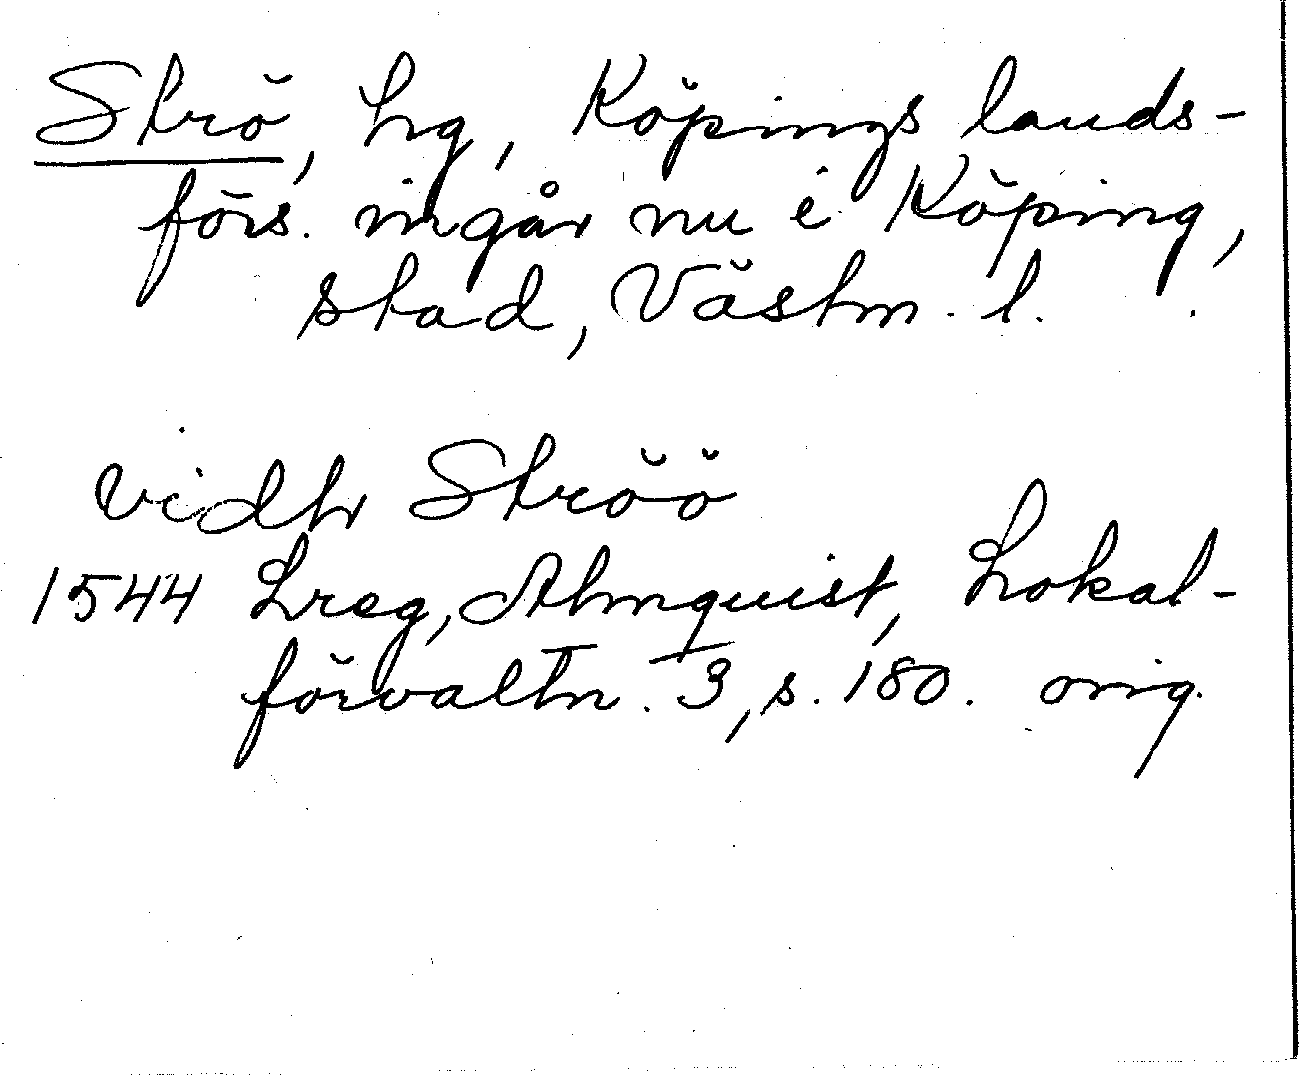 Strö, hg, Köpings lands-
förs. ingår nu i Köping,
stad, Västm. l.
vidh Ströö
1544 Lreg, Almquist, Lokal-
förvaltn. 3, s. 180. orig.